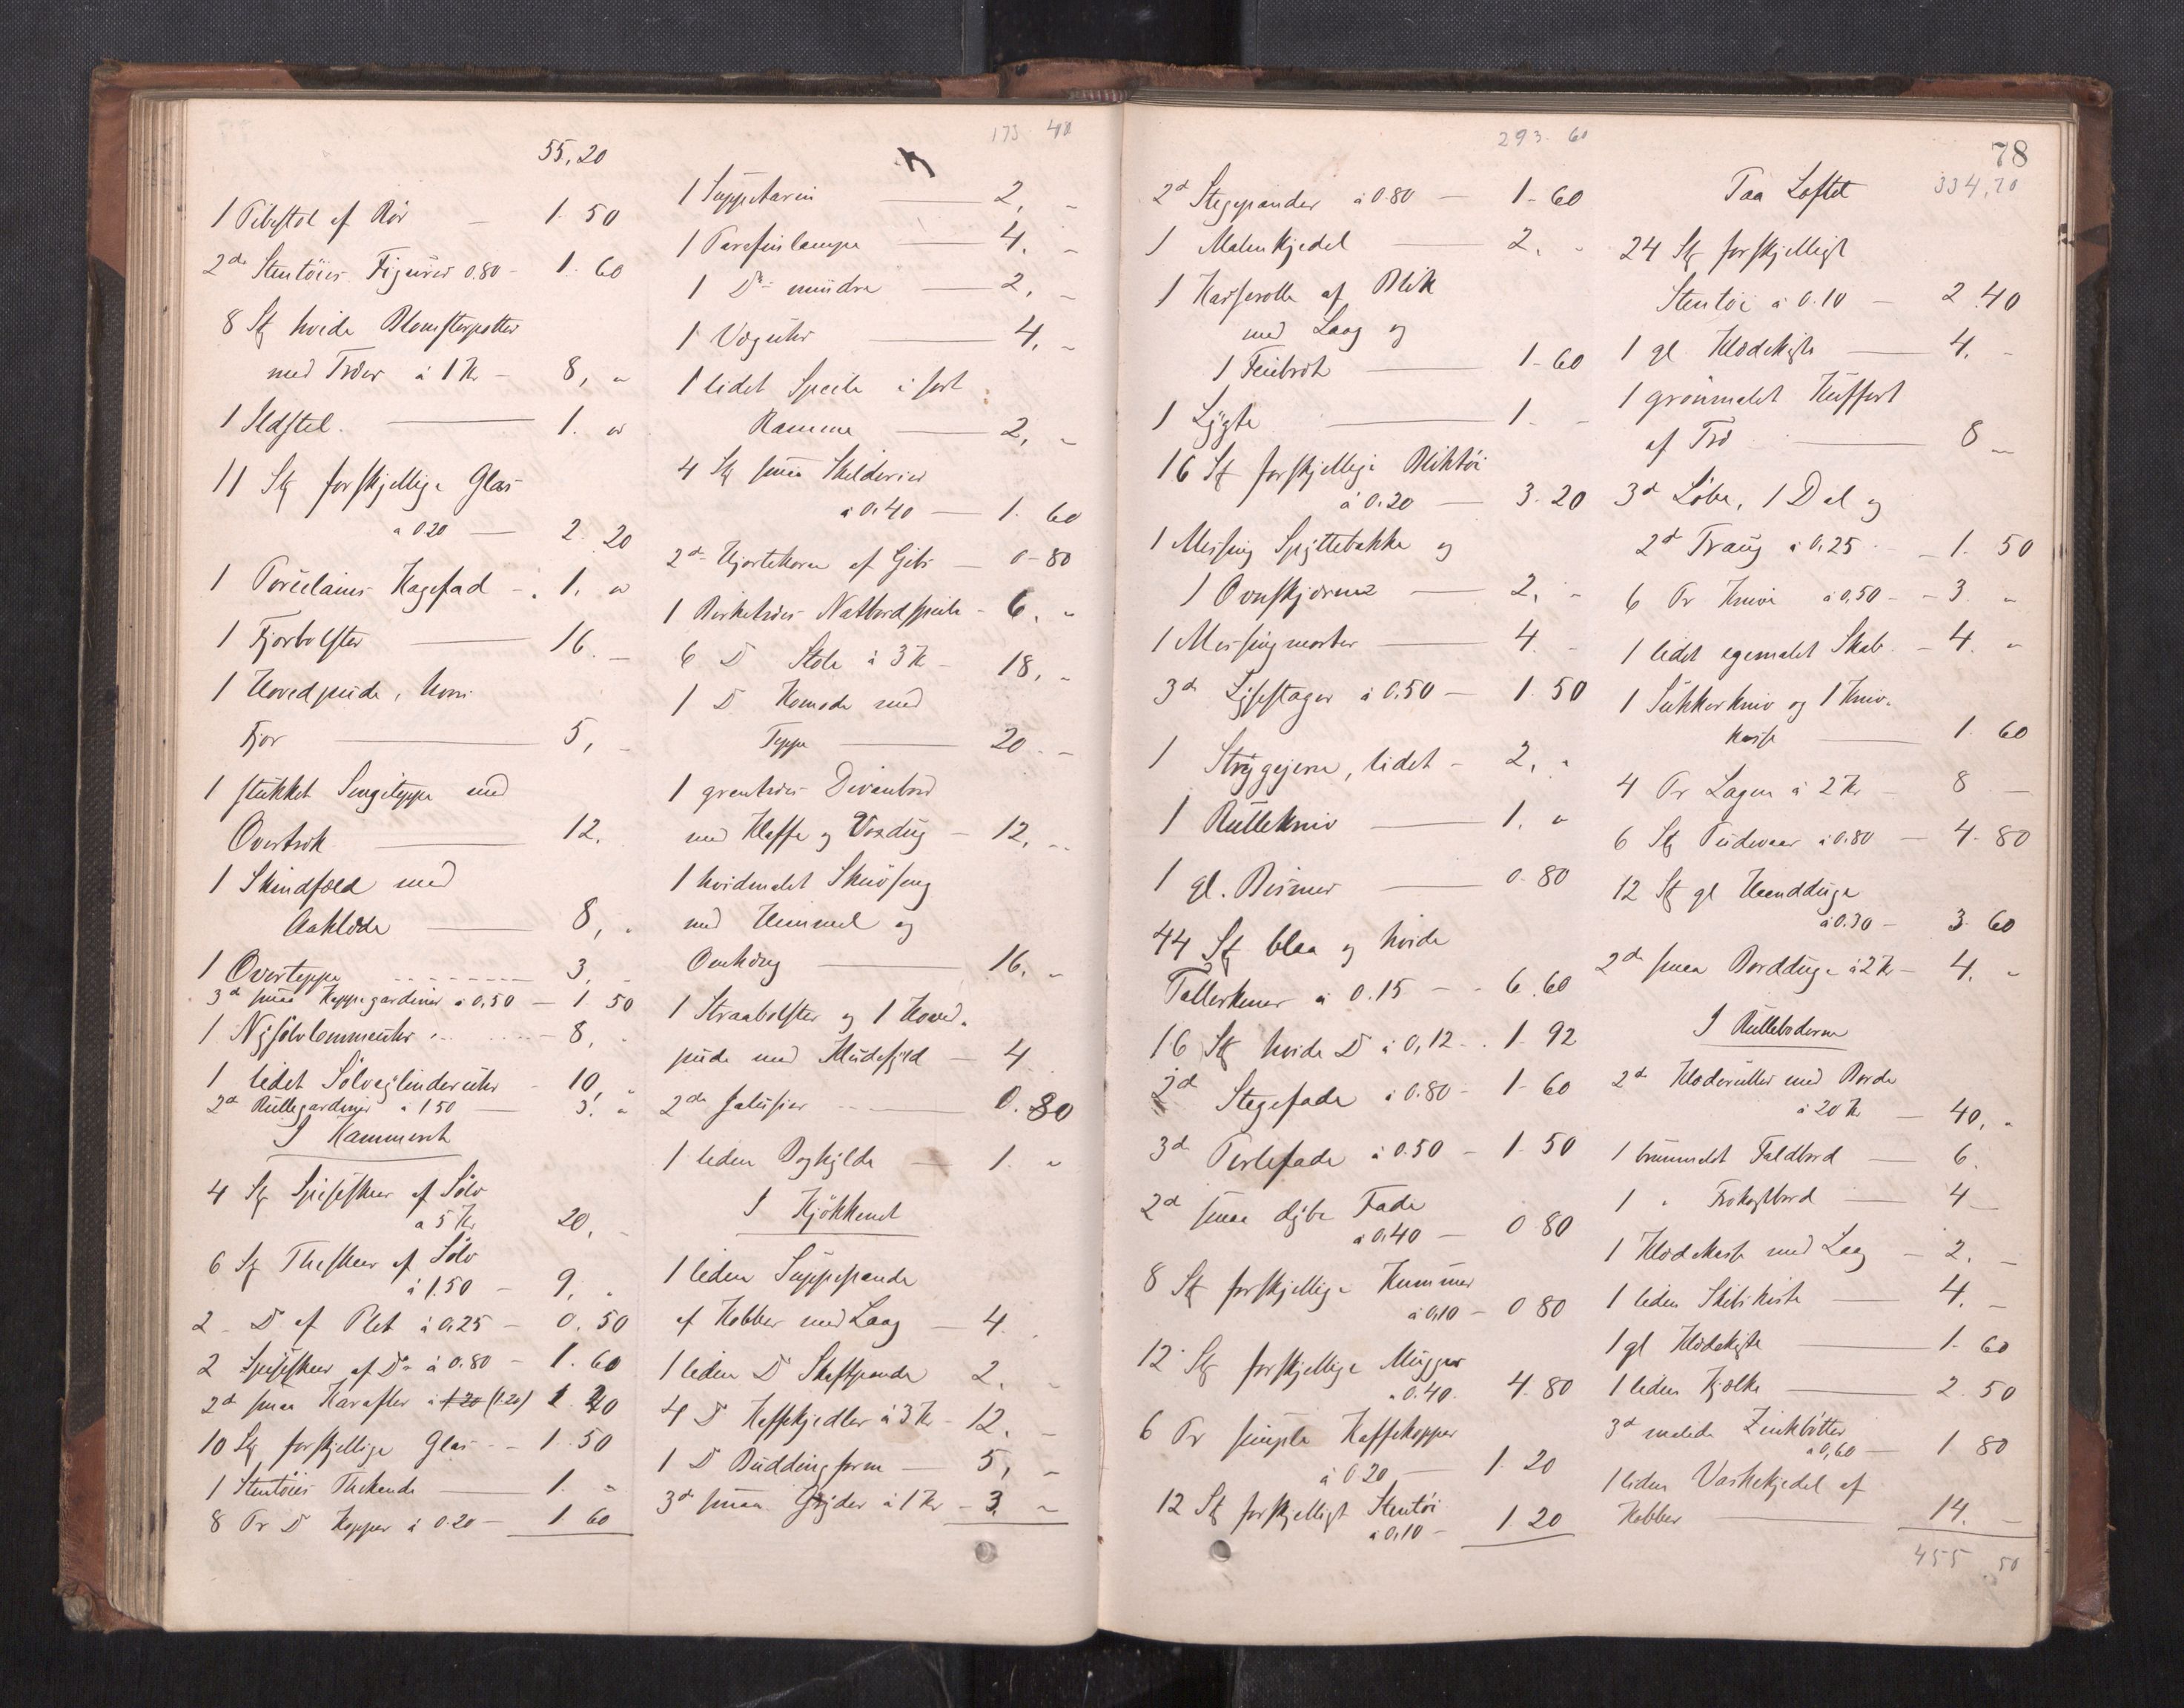 55,20
1 Pibestol af Rør — 1. 50
2de Stentöies Figurer 0.80 - 1. 60
8 Stk hvide Blomsterpotter
med Træer à 1 Kr - 8, "
1 Ildstel. — 1. "
11 Stk forskjellige Glas
a 020 — 2. 20
1 Porcelains Kagefad - 1. "
1 Fjørbolster — 16. –
1 Hovedpude, hvori
Fjør — 5, -
1 stukket Sengeteppe med
Overtræk — 12.
1 Skindfæld med
Aaklæde — 8, "
1 Overteppe - - - - 3, -
3de smaa Kappegardiner a 0,50 — 1. 50
1 Nysølvlommeuhr - - 8, "
1 lidet Sølvcylinderuhr - 10, "
2de Rullegardiner a 1 50 — 3. "
I Kammeret
4 Stk Spiseskeer af Sölv
a 5 Kr 20, -
6 Stk Theskeer af Sölv
à 1.50 - 9, "
2 - Do af Plet à 0,25 - 0. 50
2 Spiseskeer af Do à 0.80 - 1. 60
2de smaa Karafler à 1 20 (1.20) 2. 40
10 Stk forskjellige Glas - - 1. 50
1 Stentöies Thekande — 1. "
8 Pr Do Kopper à 0.20 — 1 60
173. 40
1 Suppeterin — 2, -
1 Parafinlampe — 4. -
1 Do mindre — 2, -
1 Væguhr — 4, -
1 lidet Speile i sort
Ramme — 2, -
4 Stk smaa Skilderier
à 0,40 — 1. 60
2de Hjortehorn af Gibs — 0-80
1 Birketræes Natbordspeile - 6. "
6 Do Stole à 3 Kr - 18, -
1 Do Komode med
Teppe — 20. -
1 grantræes Divanbord
med Klaffe og Voxdug — 12, -
1 hvidmalet Skuvseng
med Himmel og
Omhæng — 16. -
1 Straabolster og 1 Hoved.
pude med Kludefyld — 4
2de Jalusier - — 0. 80
1 liden Boghylde — 1. "
I Kjökkenet
1 liden Suppepande
af Kobber med Laag — 4.
1 liden Do Skaftpande 2. -
4 Do Kaffekjedler à 3 Kr - 12. -
1 Do Buddingform — 5, -
3de smaa Gryder à 1 Kr - 3. ~
293. 60
78
2de Stegepander à 0.80 — 1- 60
1 Malmkjedel — 2, -
1 Kasserolle af Blik
med Laag og
1 Feiebræt — 1- 60
1 Lygte — 1. -
16 Stk forskjellige Bliktöi
à 0.20 — 3. 20
1 Messing Spyttebakke og
1 Ovnskjærm — 2, -
1 Messingmorter — 4. -
3de Lysestager à 0.50 — 1. 50
1 Strygejern, lidet - 2, "
1 Rullekniv — 1. "
1 gl. Bismer — 0. 80
44 Stk blaa og hvide
Tallerkener à 0.15 - - 6. 60
16 Stk hvide Do à 0,12 - . 1. 92
2de Stegefade à 0.80 - 1- 60
3de Perlefade à 0.50 - 1- 50
2de smaa dybe Fade
à 0,40 — 0 80
8 Stk forskjellige Kummer
à 0,10 — 0 80
12 Stk forskjellige Mugger
à 0.40. 4. 80
6 Pr simple Kaffekopper
à 0.20 — 1. 20
12 Stk forskjelligt Stentöi
à 0,10 — 1 20
334,70
Paa Loftet
24 Stk forskjelligt
Stentöi à 0.10 — 2. 40
1 gl. Klædekiste — 4. -
1 grönmalet Kuffert
af Træ — 8 -
3de Löbe, 1 Dal og
2de Traug à 0,25 - 1. 50
6 Pr Knive à 0,50 - - 3. "
1 lidet egemalet Skab - 4. "
1 Sukkerkniv og 1 Kniv-
kasse — 1. 60
4 Pr Lagen à 2 Kr - 8 —
6 Stk Pudevaar à 0.80 — 4- 80
12 Stk gl Haandduge
à 0.30 — 3. 60
2de smaa Bordduge à 2 Kr — 4. "
I Rulleboderne
2de Klæderuller med Borde
à 20 Kr — 40, "
1 brunmalet Faldbord — 6.
1 " Frokostbord — 4 —
1 Klædekurv med Laag — 2. -
1 liden Skibskiste — 4. -
1 gl Klædekiste — 1- 60
1 liden Kjælke — 2. 50
3de malede Zinkbötter
à 0,60 — 1 80
1 liden Vaskekjedel af
Kobber — 14. -
455. 50